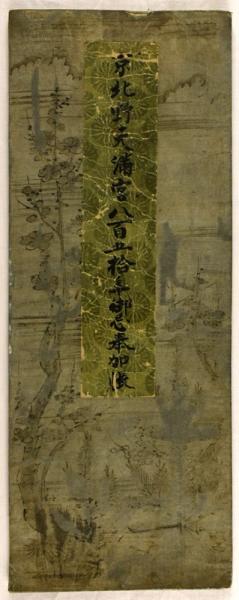 京北野天満宮八百五拾年御忌奉加帳